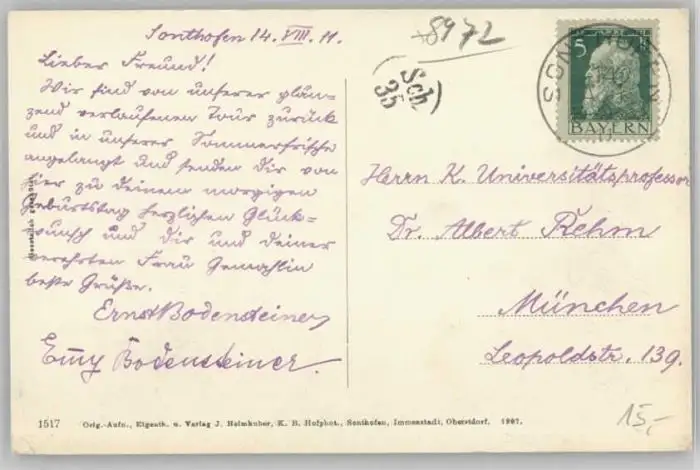 Sonthofen 14. VIII. 11.
Lieber Freund!
Wir sind von unserer glän-
zend verlaufenen Tour zurück
und in unserer Sommerfrische
angelangt und senden dir von
hier zu deinem morgigen
Geburtstag herzlichen Glück-
wunsch und dir und deiner
verehrten Frau Gemahlin
beste Grüße.
Ernst Bodensteiner,
Emmy Bodensteiner.
8972
Sch
35
5
BAYERN
Herrn K. Universitätsprofessor
Dr. Albert Rehm
München
Leopoldstr. 139.
15,-
1517 Orig.-Aufn., Eigenth. u. Verlag J. Heimhuber, K. B. Hofphot., Sonthofen, Immenstadt, Oberstdorf. 1907.